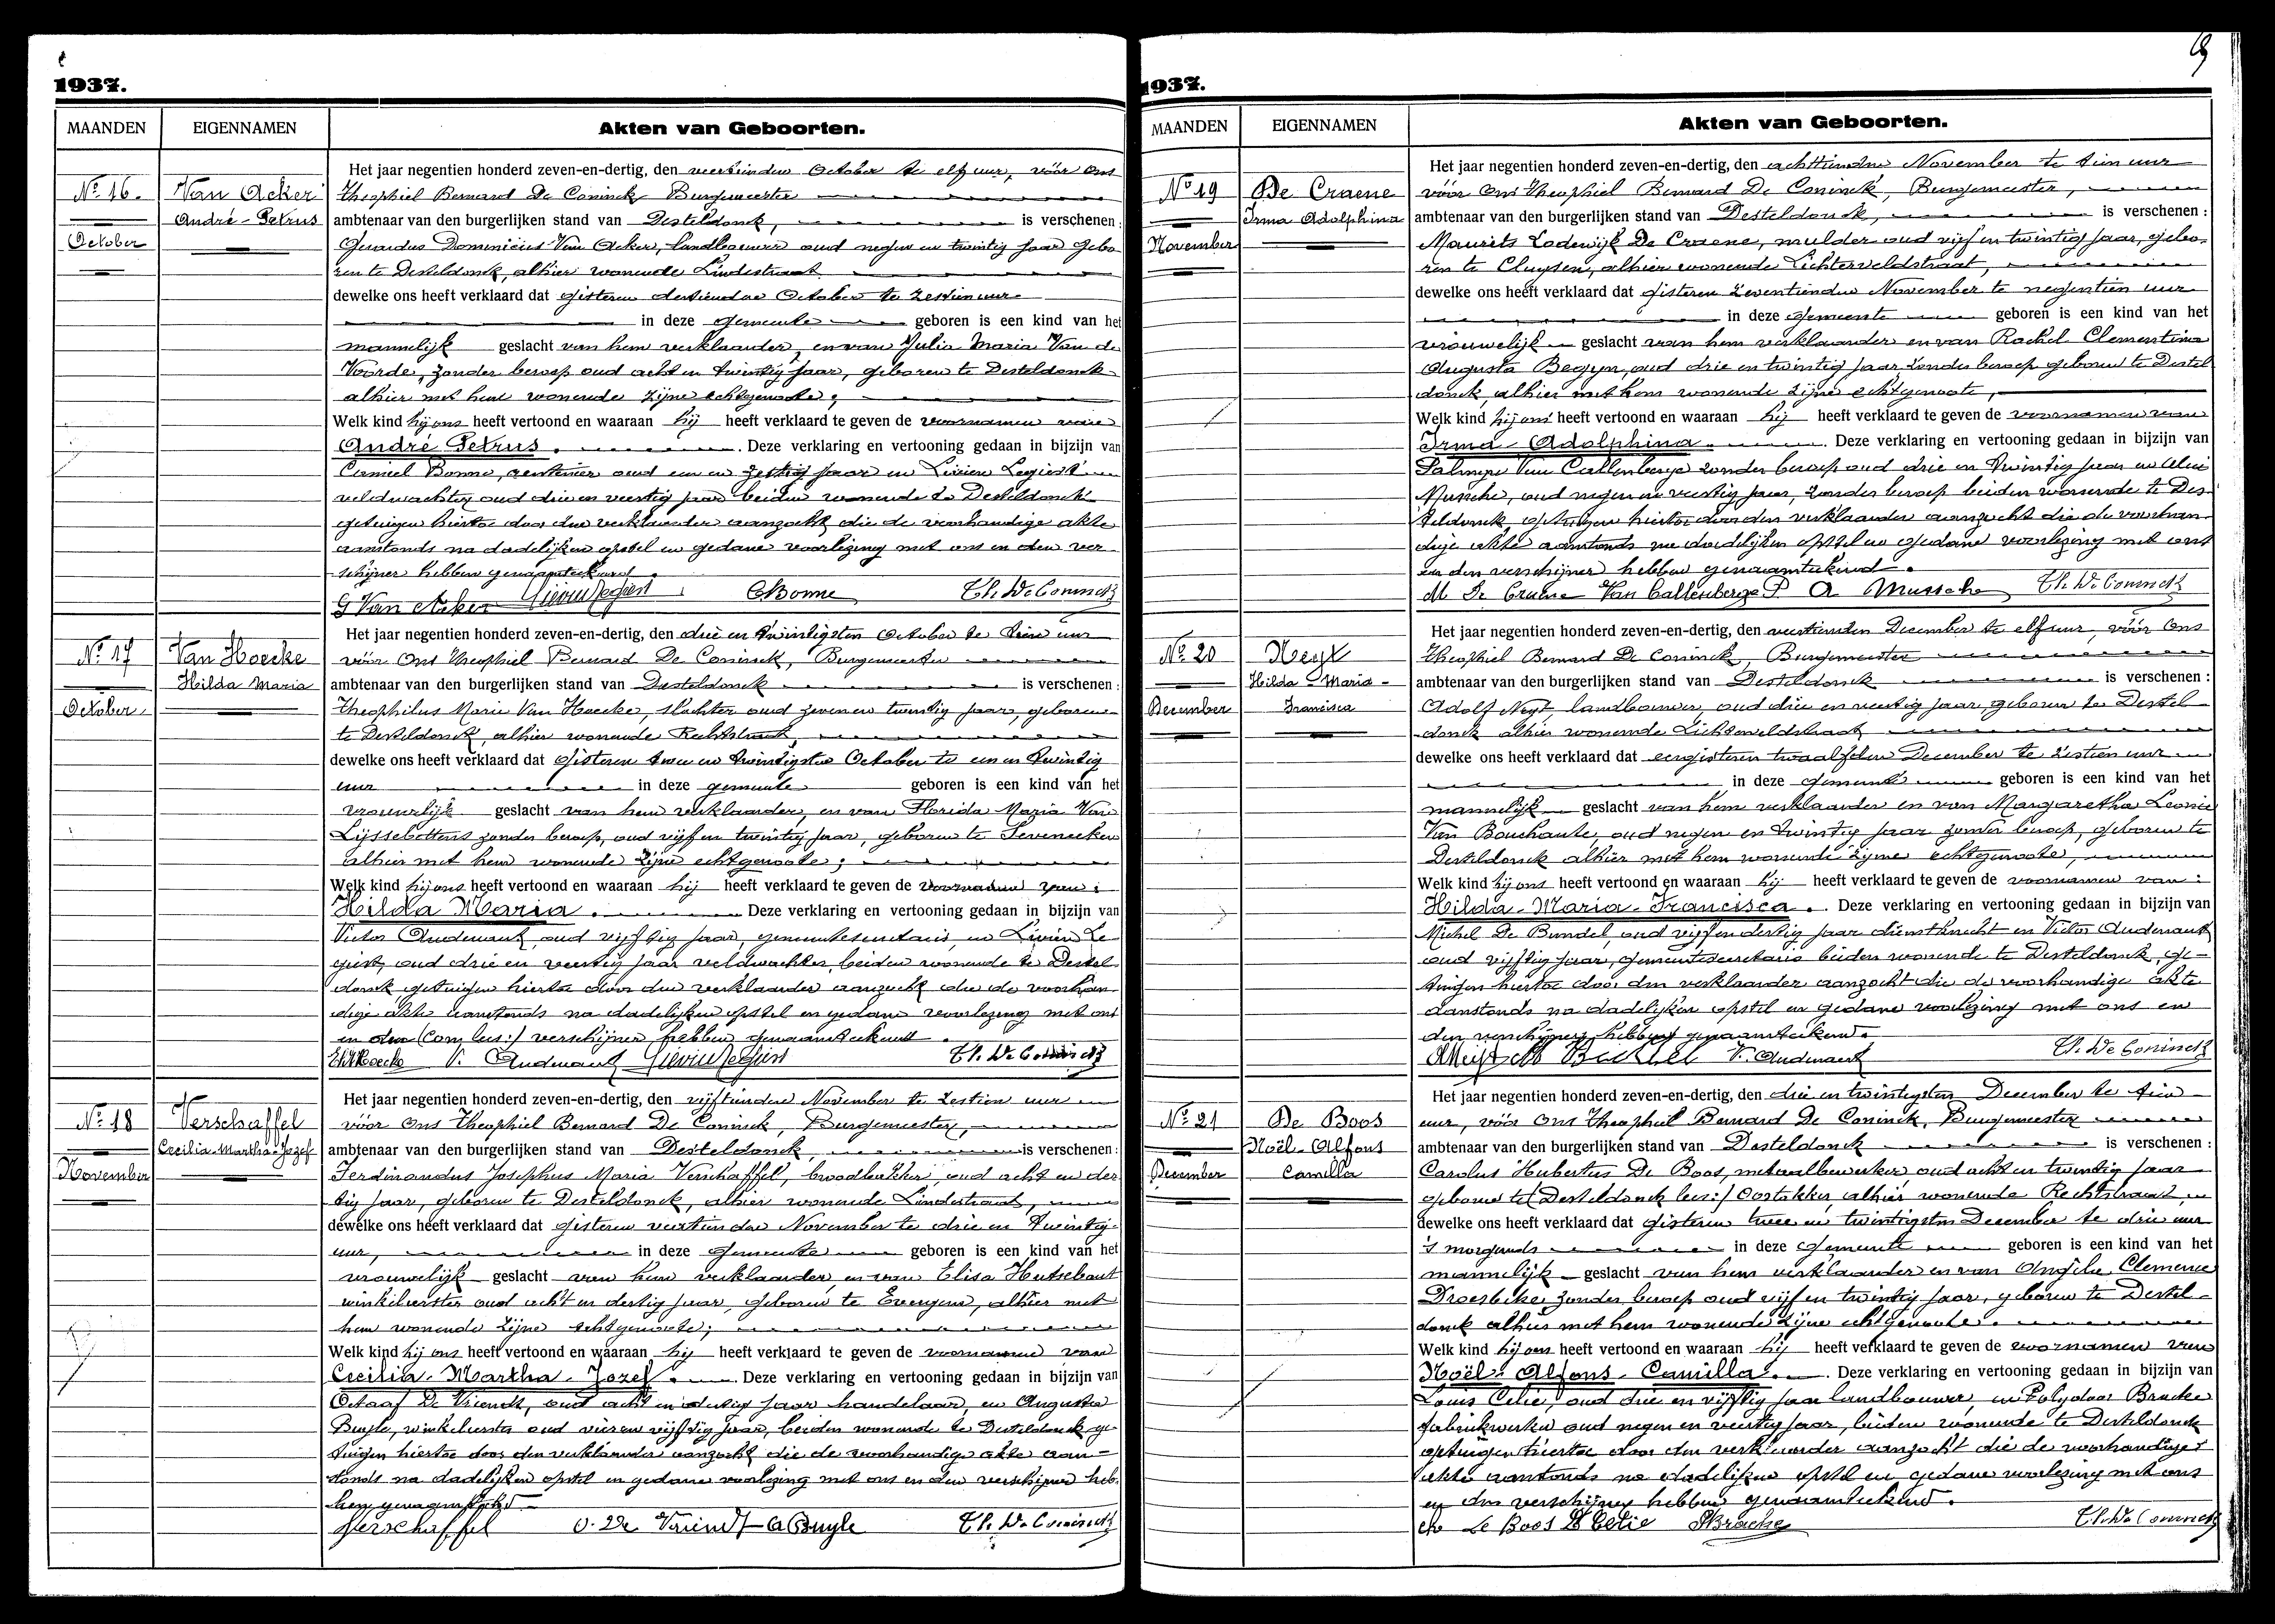 1937.
MAANDEN
EIGENNAMEN
Akten van Geboorten.
Nº 16.
October
Van Acker
André - Petrus
Het jaar negentien honderd zeven-en-dertig, den veertienden October te elf uur, vóór ons
Theophiel Bernard De Coninck Burgemeester
ambtenaar van den burgerlijken stand van Desteldonck, is verschenen:
Gerardus Dominicus Van Acker, landbouwer oud negen en twintig jaar gebo-
ren te Desteldonck, alhier wonende Lindestraat
dewelke ons heeft verklaard dat gisteren dertienden October te zestien uur
in deze gemeente geboren is een kind van het
mannelijk geslacht van hem verklaarder, en van Julia Maria Van de
Voorde, zonder beroep oud acht en twintig jaar, geboren te Desteldonck
alhier met hem wonende zijne echtgenoote;
Welk kind hij ons heeft vertoond en waaraan hij heeft verklaard te geven de voornamen van
André Petrus. Deze verklaring en vertooning gedaan in bijzijn van
Camiel Bonne, rentenier oud een en zestig jaar en Livien Legiest
veldwachter oud drie en veertig jaar beiden wonende te Desteldonck
getuigen hiertoe door den verklaarder aanzocht die de voorhandige akte
aanstonds na dadelijken opstel en gedane voorlezing met ons en den ver-
schijner hebben genaamteekend.
G Van Acker Livien Legiest CBonne Th. De Coninck
Nº 17
October
Van Hoecke
Hilda Maria
Het jaar negentien honderd zeven-en-dertig, den drie en twintigsten October te tien uur
vóór Ons Theophiel Bernard De Coninck, Burgemeester
ambtenaar van den burgerlijken stand van Desteldonck is verschenen:
Theophilus Marie Van Hoecke, slachter oud zeven en twintig jaar, geboren
te Desteldonck, alhier wonende Rechtstraat,
dewelke ons heeft verklaard dat gisteren twee en twintigsten October te een en twintig
uur in deze gemeente geboren is een kind van het
vrouwelijk geslacht van hem verklaarder, en van Florida Maria Van
Lijssebettens zonder beroep, oud vijf en twintig jaar, geboren te Seveneecken
alhier met hem wonende zijne echtgenoote;
Welk kind hij ons heeft vertoond en waaraan hij heeft verklaard te geven de voornamen van:
Hilda Maria. Deze verklaring en vertooning gedaan in bijzijn van
Victor Audenaert, oud vijftig jaar, gemeentesecretaris, en Livien Le-
giest, oud drie en veertig jaar veldwachter, beiden wonende te Destel-
donck, getuigen hiertoe door den verklaarder aanzocht die de voorhan-
dige akte aanstonds na dadelijken opstel en gedane voorlezing met ons
en den (lees:) verschijner hebben genaamteekend.
V. Audenaert Livien Legiest Th. De Coninck
Nº 18
November
Verschaffel
Cecilia-Martha-Jozef
Het jaar negentien honderd zeven-en-dertig, den vijftienden November te zestien uur
vóór Ons Theophiel Bernard De Coninck, Burgemeester,
ambtenaar van den burgerlijken stand van Desteldonck, is verschenen:
Ferdinandus Josephus Maria Verschaffel, broodbakker, oud acht en der-
tig jaar, geboren te Desteldonck, alhier wonende Lindestraat,
dewelke ons heeft verklaard dat gisteren veertienden November te drie en twintig
uur, in deze gemeente geboren is een kind van het
vrouwelijk geslacht van hem verklaarder, en van Elisa Hutsebaut
winkelierster oud acht en dertig jaar, geboren te Evergem, alhier met
hem wonende zijne echtgenoote;
Welk kind hij ons heeft vertoond en waaraan hij heeft verklaard te geven de voornamen van
Cecilia - Martha - Jozef. Deze verklaring en vertooning gedaan in bijzijn van
Octaaf De Vriendt, oud acht en dertig jaar handelaar, en Augusta
Buyle, winkelierster oud vier en vijftig jaar, beiden wonende te Desteldonck ge-
tuigen hiertoe door den verklaarder aanzocht die de voorhandige akte aan-
stonds na dadelijken opstel en gedane voorlezing met ons en den verschijner heb-
ben genaamteekend
Verschaffel O. De Vriendt A Buyle Th. De Coninck
19
1937.
MAANDEN
EIGENNAMEN
Akten van Geboorten.
Nº 19
November
De Craene
Irma Adolphina
Het jaar negentien honderd zeven-en-dertig, den achttienden November te tien uur
vóór Ons Theophiel Bernard De Coninck, Burgemeester,
ambtenaar van den burgerlijken stand van Desteldonck, is verschenen:
Maurits Lodewijk De Craene, mulder oud vijf en twintig jaar, gebo-
ren te Cluysen, alhier wonende Lichterveldstraat,
dewelke ons heeft verklaard dat gisteren zeventienden November te negentien uur
in deze gemeente geboren is een kind van het
vrouwelijk geslacht van hem verklaarder en van Rachel Clementina
Augusta Begyn, oud drie en twintig jaar zonder beroep geboren te Destel-
donck, alhier met hem wonende zijne echtgenoote,
Welk kind hij ons heeft vertoond en waaraan hij heeft verklaard te geven de voornamen van
Irma - Adolphina. Deze verklaring en vertooning gedaan in bijzijn van
Palmyre Van Callenberge zonder beroep oud drie en twintig jaar en
Mussche, oud negen en veertig jaar, zonder beroep beiden wonende te Des-
teldonck, getuigen hiertoe door den verklaarder aanzocht die de voorhan-
dige akte aanstonds na dadelijken opstel en gedane voorlezing met ons
en den verschijner hebben genaamteekend.
M De Craene Van Callenberge P A Mussche Th. De Coninck
Nº 20
December
Neyt
Hilda - Maria -
Francisca
Het jaar negentien honderd zeven-en-dertig, den veertienden December te elf uur, vóór Ons
Theophiel Bernard De Coninck, Burgemeester
ambtenaar van den burgerlijken stand van Desteldonck is verschenen:
Adolf Neyt landbouwer, oud drie en veertig jaar, geboren te Destel-
donck alhier wonende Lichterveldstraat
dewelke ons heeft verklaard dat eergisteren twaalfden December te zestien uur
in deze gemeente geboren is een kind van het
mannelijk geslacht van hem verklaarder en van Margaretha Leonie
Van Bouchaute, oud negen en twintig jaar zonder beroep, geboren te
Desteldonck alhier met hem wonende zijne echtgenoote,
Welk kind hij ons heeft vertoond en waaraan hij heeft verklaard te geven de voornamen van:
Hilda - Maria - Francisca. Deze verklaring en vertooning gedaan in bijzijn van
Michel De Bundel, oud vijf en dertig jaar dienstknecht en Victor Audenaert
oud vijftig jaar, gemeentesecretaris beiden wonende te Desteldonck, ge-
tuigen hiertoe door den verklaarder aanzocht die de voorhandige akte
aanstonds na dadelijken opstel en gedane voorlezing met ons en
den verschijner hebben genaamteekend.
V. Audenaert Th. De Coninck
Nº 21
December
De Boos
Noël - Alfons
Camilla
Het jaar negentien honderd zeven-en-dertig, den drie en twintigsten December te tien
uur, vóór Ons Theophiel Bernard De Coninck, Burgemeester
ambtenaar van den burgerlijken stand van Desteldonck is verschenen:
Carolus Hubertus De Boos, metaalbewerker, oud acht en twintig jaar
geboren te (Desteldonck lees:) Oostakker alhier wonende Rechtstraat,
dewelke ons heeft verklaard dat gisteren twee en twintigsten December te drie uur
's morgends in deze gemeente geboren is een kind van het
mannelijk geslacht van hem verklaarder en van Angèle Clemence
Droesbeke zonder beroep oud vijf en twintig jaar, geboren te Destel-
donck alhier met hem wonende zijne echtgenoote.
Welk kind hij ons heeft vertoond en waaraan hij heeft verklaard te geven de voornamen van
Noël - Alfons - Camilla. Deze verklaring en vertooning gedaan in bijzijn van
Louis Celie, oud drie en vijftig jaar landbouwer, en Polydoor Bracke
fabriekwerker oud negen en veertig jaar, beiden wonende te Desteldonck
getuigen hiertoe door den verklaarder aanzocht die de voorhandige
akte aanstonds na dadelijken opstel en gedane voorlezing met ons
en den verschijner hebben genaamteekend.
De Boos L Celie PBracke Th. De Coninck